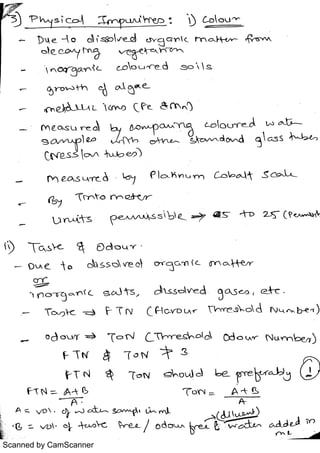 3) Physical Impurities : i) Colour
- Due to dissolved organic matter from
decaying vegetation
- inorganic coloured soils
- growth of algae
- metallic ions (Fe & Mn)
- measured by comparing coloured water
samples with other standard glass tubes
(Nesslon tubes)
- measured by Platinum Cobalt Scale
- By Tintometer
- Units permissible ⇒ 5 to 25
ii) Taste & Odour
- Due to dissolved organic matter
or
inorganic salts, dissolved gases, etc.
- Taste ⇒ FTN (Flavour Threshold Number)
- odour ⇒ TON (Threshold Odour Number)
FTN & TON ≯ 3
FTN & TON should be preferably 1
FTN = A+B / A TON = A+B / A
A = vol. of water sample in ml (diluent)
B = vol. of taste free / odour free water added in
ml
Scanned by CamScanner